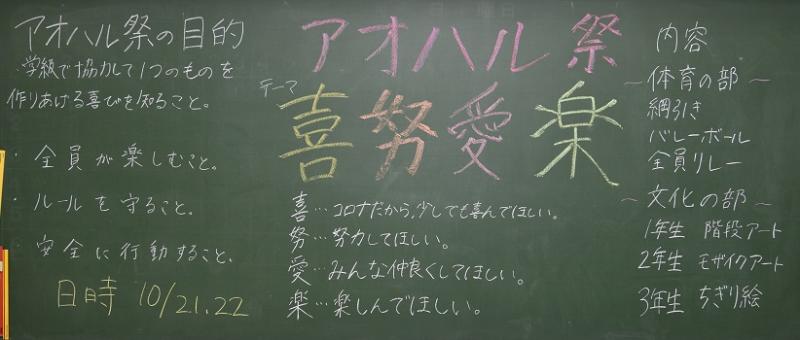 アオハル祭の目的
学級で協力して1つのものを
作りあげる喜びを知ること。
・全員が楽しむこと。
・ルールを守ること。
・安全に行動すること。
日時 10/21.22
アオハル祭
テーマ
喜努愛楽
喜…コロナだから、少しでも喜んでほしい。
努…努力してほしい。
愛…みんな仲良くしてほしい。
楽…楽しんでほしい。
内容
〜体育の部〜
綱引き
バレーボール
全員リレー
〜文化の部〜
1年生 階段アート
2年生 モザイクアート
3年生 ちぎり絵